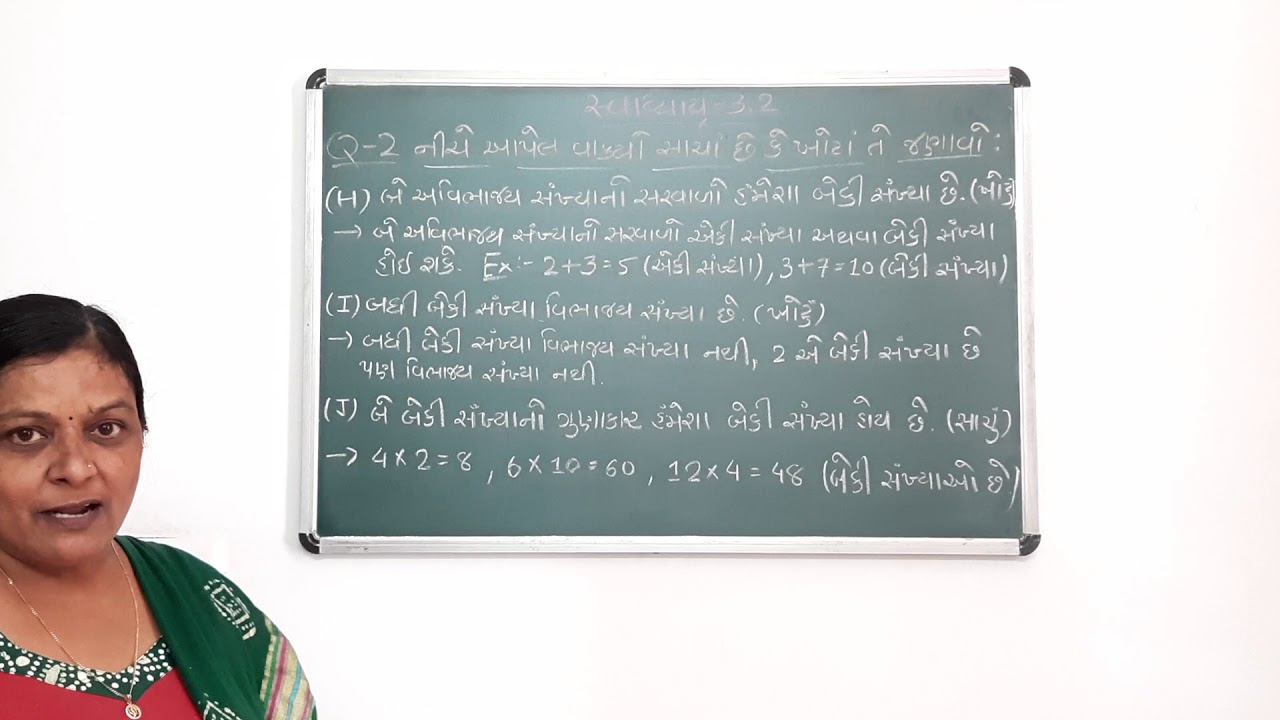 સ્વાધ્યાય-3.2
Q-2 નીચે આપેલ વાક્યો સાચાં છે કે ખોટાં તે જણાવો :
(H) બે અવિભાજ્ય સંખ્યાનો સરવાળો હંમેશા બેકી સંખ્યા છે. (ખોટું)
→ બે અવિભાજ્ય સંખ્યાનો સરવાળો એકી સંખ્યા અથવા બેકી સંખ્યા
હોઈ શકે. Ex:- 2+3=5 (એકી સંખ્યા), 3+7=10 (બેકી સંખ્યા)
(I) બધી બેકી સંખ્યા વિભાજ્ય સંખ્યા છે. (ખોટું)
→ બધી બેકી સંખ્યા વિભાજ્ય સંખ્યા નથી, 2 એ બેકી સંખ્યા છે
પણ વિભાજ્ય સંખ્યા નથી.
(J) બે બેકી સંખ્યાનો ગુણાકાર હંમેશા બેકી સંખ્યા હોય છે. (સાચું)
→ 4×2=8 , 6×10=60 , 12×4=48 (બેકી સંખ્યાઓ છે)